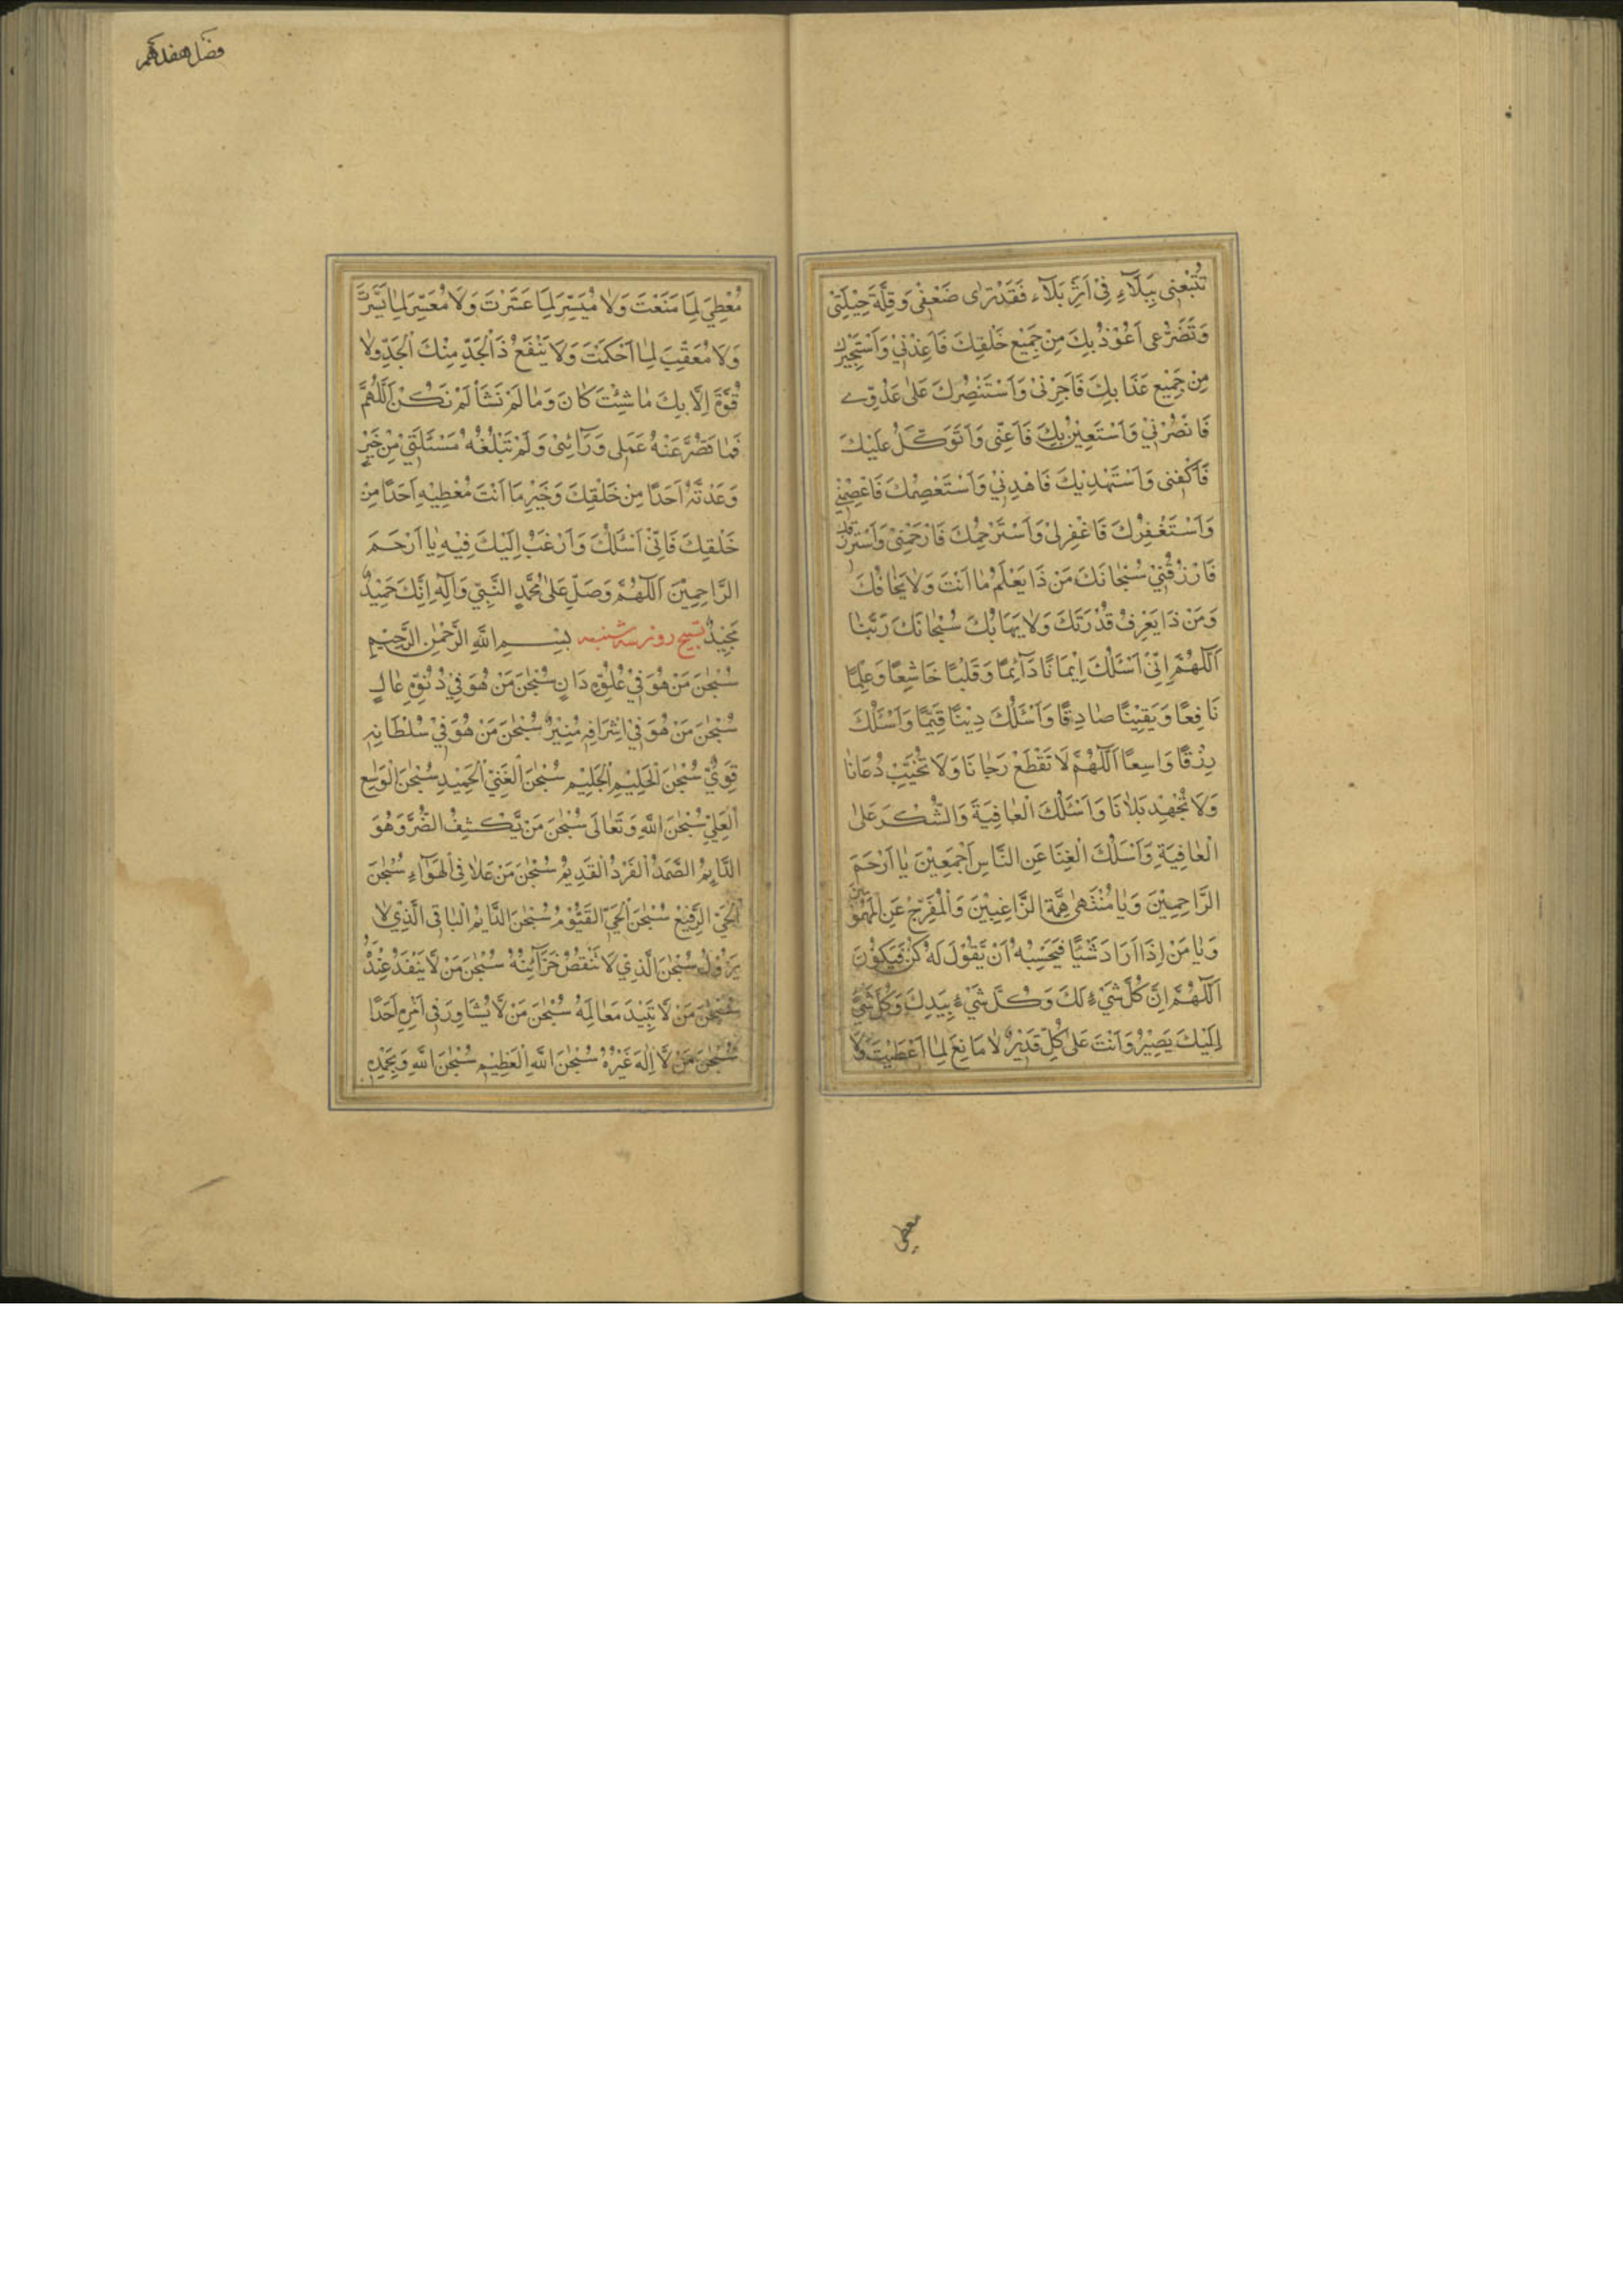 تُتْبِعْنِى بِبَلَآءٍ فِىْ اَثَرِ بَلَآءٍ فَقَدْ تَرٰى ضَعْفِىْ وَقِلَّةَ حِيْلَتِىْ
وَتَضَرُّعِى اَعُوْذُ بِكَ مِنْ جَمِيْعِ خَلْقِكَ فَاَعِذْنِىْ وَاَسْتَجِيْرُكَ
مِنْ جَمِيْعِ عَذَابِكَ فَاَجِرْنِىْ وَاَسْتَنْصِرُكَ عَلٰى عَدُوِّى
فَانْصُرْنِىْ وَاَسْتَعِيْنُ بِكَ فَاَعِنِّى وَاَتَوَكَّلُ عَلَيْكَ
فَاَكْفِنِى وَاَسْتَهْدِيْكَ فَاهْدِنِىْ وَاَسْتَعْصِمُكَ فَاعْصِمْنِىْ
وَاَسْتَغْفِرُكَ فَاغْفِرْلِىْ وَاَسْتَرْحِمُكَ فَارْحَمْنِىْ وَاَسْتَرْزِقُكَ
فَارْزُقْنِىْ سُبْحَانَكَ مَنْ ذَا يَعْلَمُ مَا اَنْتَ وَلَا يَخَافُكَ
وَمَنْ ذَا يَعْرِفُ قُدْرَتَكَ وَلَا يَهَابُكَ سُبْحَانَكَ رَبَّنَا
اَللّٰهُمَّ اِنِّىْ اَسْئَلُكَ اِيْمَانًا دَآئِمًا وَقَلْبًا خَاشِعًا وَعِلْمًا
نَافِعًا وَيَقِيْنًا صَادِقًا وَاَسْئَلُكَ دِيْنًا قَيِّمًا وَاَسْئَلُكَ
رِزْقًا وَاسِعًا اَللّٰهُمَّ لَا تَقْطَعْ رَجَانَا وَلَا تُخَيِّبْ دُعَانَا
وَلَا تُجْهِدْ بَلَانَا وَاَسْئَلُكَ الْعَافِيَةَ وَالشُّكْرَ عَلٰى
الْعَافِيَةِ وَاَسْئَلُكَ الْغِنَا عَنِ النَّاسِ اَجْمَعِيْنَ يَا اَرْحَمَ
الرَّاحِمِيْنَ وَيَا مُنْتَهٰى هِمَّةِ الرَّاغِبِيْنَ وَالْمُفَرِّجْ عَنِ الْمَهْمُوْمِيْنَ
وَيَا مَنْ اِذَا اَرَادَ شَيْئًا فَحَسْبُهُ اَنْ يَّقُوْلَ لَهُ كُنْ فَيَكُوْنَ
اَللّٰهُمَّ اِنَّ كُلَّ شَىْءٍ لَكَ وَكُلَّ شَىْءٍ بِيَدِكَ وَكُلَّ شَىْءٍ
اِلَيْكَ يَصِيْرُ وَاَنْتَ عَلٰى كُلِّ قَدِيْرٌ لَا مَانِعَ لِمَا اَعْطَيْتَ وَلَا
معطى
فصل هفدهم
مُعْطِىَ لِمَا مَنَعْتَ وَلَا مُيَسِّرَ لِمَا عَسَّرْتَ وَلَا مُعَسِّرَ لِمَا يَسَّرْتَ
وَلَا مُعَقِّبَ لِمَا اَحْكَمْتَ وَلَا يَنْفَعُ ذَا الْجَدِّ مِنْكَ الْجَدُّ وَلَا
قُوَّةَ اِلَّا بِكَ مَا شِئْتَ كَانَ وَمَا لَمْ تَشَأْ لَمْ تَكُنْ اَللّٰهُمَّ
فَمَا قَصُرَ عَنْهُ عَمَلِى وَرَآئِىْ وَلَمْ تَبْلُغْهُ مَسْئَلَتِىْ مِنْ خَيْرٍ
وَعَدْتَّهُ اَحَدًا مِنْ خَلْقِكَ وَخَيْرِ مَا اَنْتَ مُعْطِيْهِ اَحَدًا مِنْ
خَلْقِكَ فَاِنِّىْ اَسْئَلُكَ وَاَرْغَبُ اِلَيْكَ فِيْهِ يَا اَرْحَمَ
الرَّاحِمِيْنَ اَللّٰهُمَّ وَصَلِّ عَلٰى مُحَمَّدٍ النَّبِىِّ وَاٰلِهِ اِنَّكَ حَمِيْدٌ
مَجِيْدٌ تسبيح روز سه شنبه بِسْمِ اللهِ الرَّحْمٰنِ الرَّحِيْمِ
سُبْحٰنَ مَنْ هُوَ فِىْ عُلُوِّهِ دَانٍ سُبْحٰنَ مَنْ هُوَ فِىْ دُنُوِّهِ عَالٍ
سُبْحٰنَ مَنْ هُوَ فِىْ اِشْرَافِهِ مُنِيْرٌ سُبْحٰنَ مَنْ هُوَ فِىْ سُلْطَانِهِ
قَوِىٌّ سُبْحٰنَ الْحَلِيْمِ الْجَلِيْمِ سُبْحٰنَ الْغَنِىِّ الْحَمِيْدِ سُبْحٰنَ الْوَاسِعِ
الْعَلِىِّ سُبْحٰنَ اللهِ وَتَعَالٰى سُبْحٰنَ مَنْ يَّكْشِفُ الضُّرَّ وَهُوَ
الدَّايِمُ الصَّمَدُ الْفَرْدُ الْقَدِيْمُ سُبْحٰنَ مَنْ عَلَا فِى الْهَوَآءِ سُبْحٰنَ
الْحَىِّ الرَّفِيْعِ سُبْحٰنَ الْحَىِّ الْقَيُّوْمُ سُبْحٰنَ الدَّايِمُ الْبَاقِى الَّذِىْ لَا
يَزُوْلُ سُبْحٰنَ الَّذِىْ لَا تَنْقُصُ خَزَآئِنُهُ سُبْحٰنَ مَنْ لَا يَنْفَدُ عِنْدَهُ
سُبْحٰنَ مَنْ لَا تَبِيْدُ مَعَالِمُهُ سُبْحٰنَ مَنْ لَّا يُشَاوِرُ فِى اَمْرِهِ اَحَدًا
سُبْحٰنَ مَنْ لَّا اِلٰهَ غَيْرُهُ سُبْحٰنَ اللهِ الْعَظِيْمِ سُبْحٰنَ اللهِ وَبِحَمْدِهِ